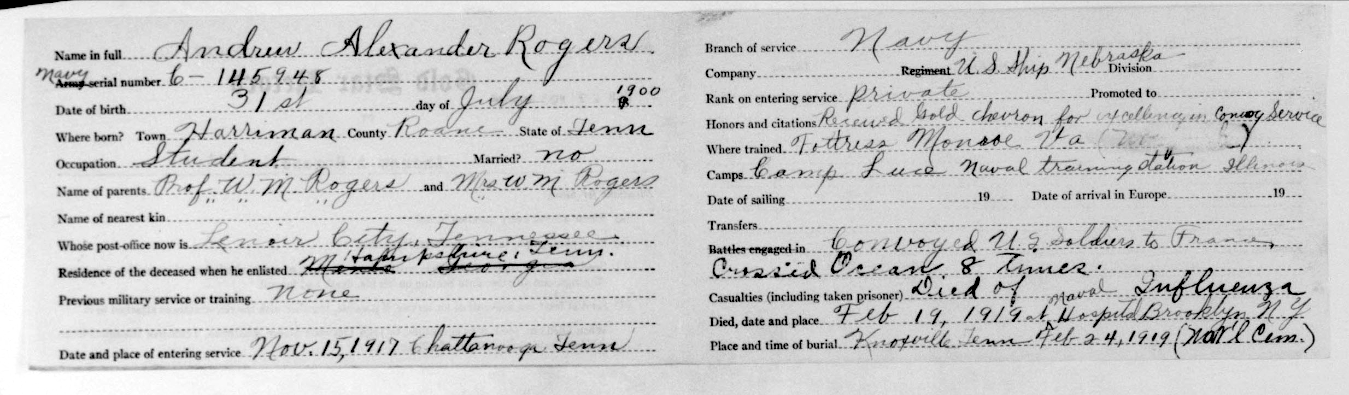 Name in full Andrew Alexander Rogers
Navy Army serial number 6-145948
Date of birth 31st day of July 1900
Where born? Town Harriman County Roane State of Tenn
Occupation Student Married? no
Name of parents Prof. W. M Rogers and Mrs W M Rogers
Name of nearest kin " " "
Whose post-office now is Lenoir City, Tennessee
Residence of the deceased when he enlisted Georgia Tenn.
Previous military service or training None
Date and place of entering service Nov. 15, 1917 Chattanooga Tenn
Branch of service Navy
Company Regiment U S Ship Nebraska Division
Rank on entering service private Promoted to
Honors and citations Received Gold chevron for excellency in Convoy Service
Where trained Fortress Monroe Va
Camps Camp Luce Naval training station Illinois
Date of sailing 19 Date of arrival in Europe 19
Transfers
Battles engaged in Convoyed U S Soldiers to France
Crossed Ocean 8 times.
Casualties (including taken prisoner) Died of Influenza
Died, date and place Feb 19, 1919 at Naval Hospital Brooklyn N Y
Place and time of burial Knoxville Tenn Feb 24, 1919 (Nat'l Cem.)